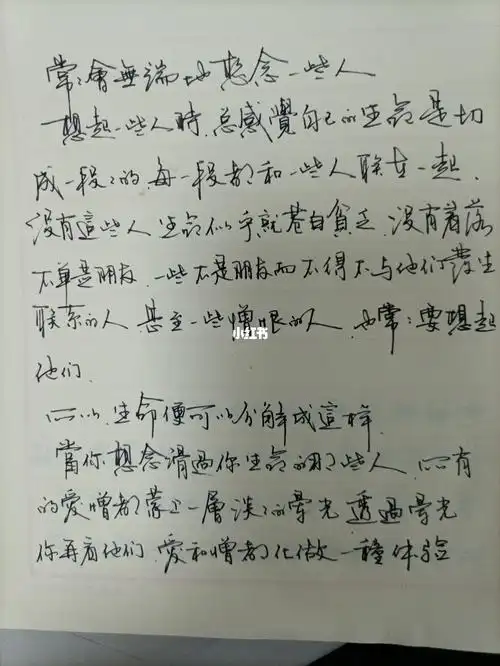 常：會無端地想念一些人
想起一些人時，总感覺自己的生命是切
成一段：的，每一段都和一些人联在一起，
没有這些人生命似乎就苍白貧乏，没有着落
不單是朋友，一些不是朋友而不得不与他们發生
联系的人，甚至一些憎恨的人，也常：要想起
他们。
所以，生命便可以分解成這样，
當你想念滑過你生命的那些人，所有
的爱憎都蒙上一層淡：的暈光，透過暈光
你再看他们，爱和憎都化做一種体验
小红书